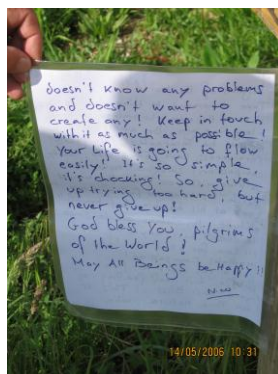 doesn't know any problems
and doesn't want to
create any! Keep in touch
with it as much as possible!
Your Life is going to flow
easily! It's so simple,
it's chocking! So, give
up trying too hard, but
never give up!
God bless You, pilgrims
of the World!
May All Beings be Happy!!
14/05/2006 10:31